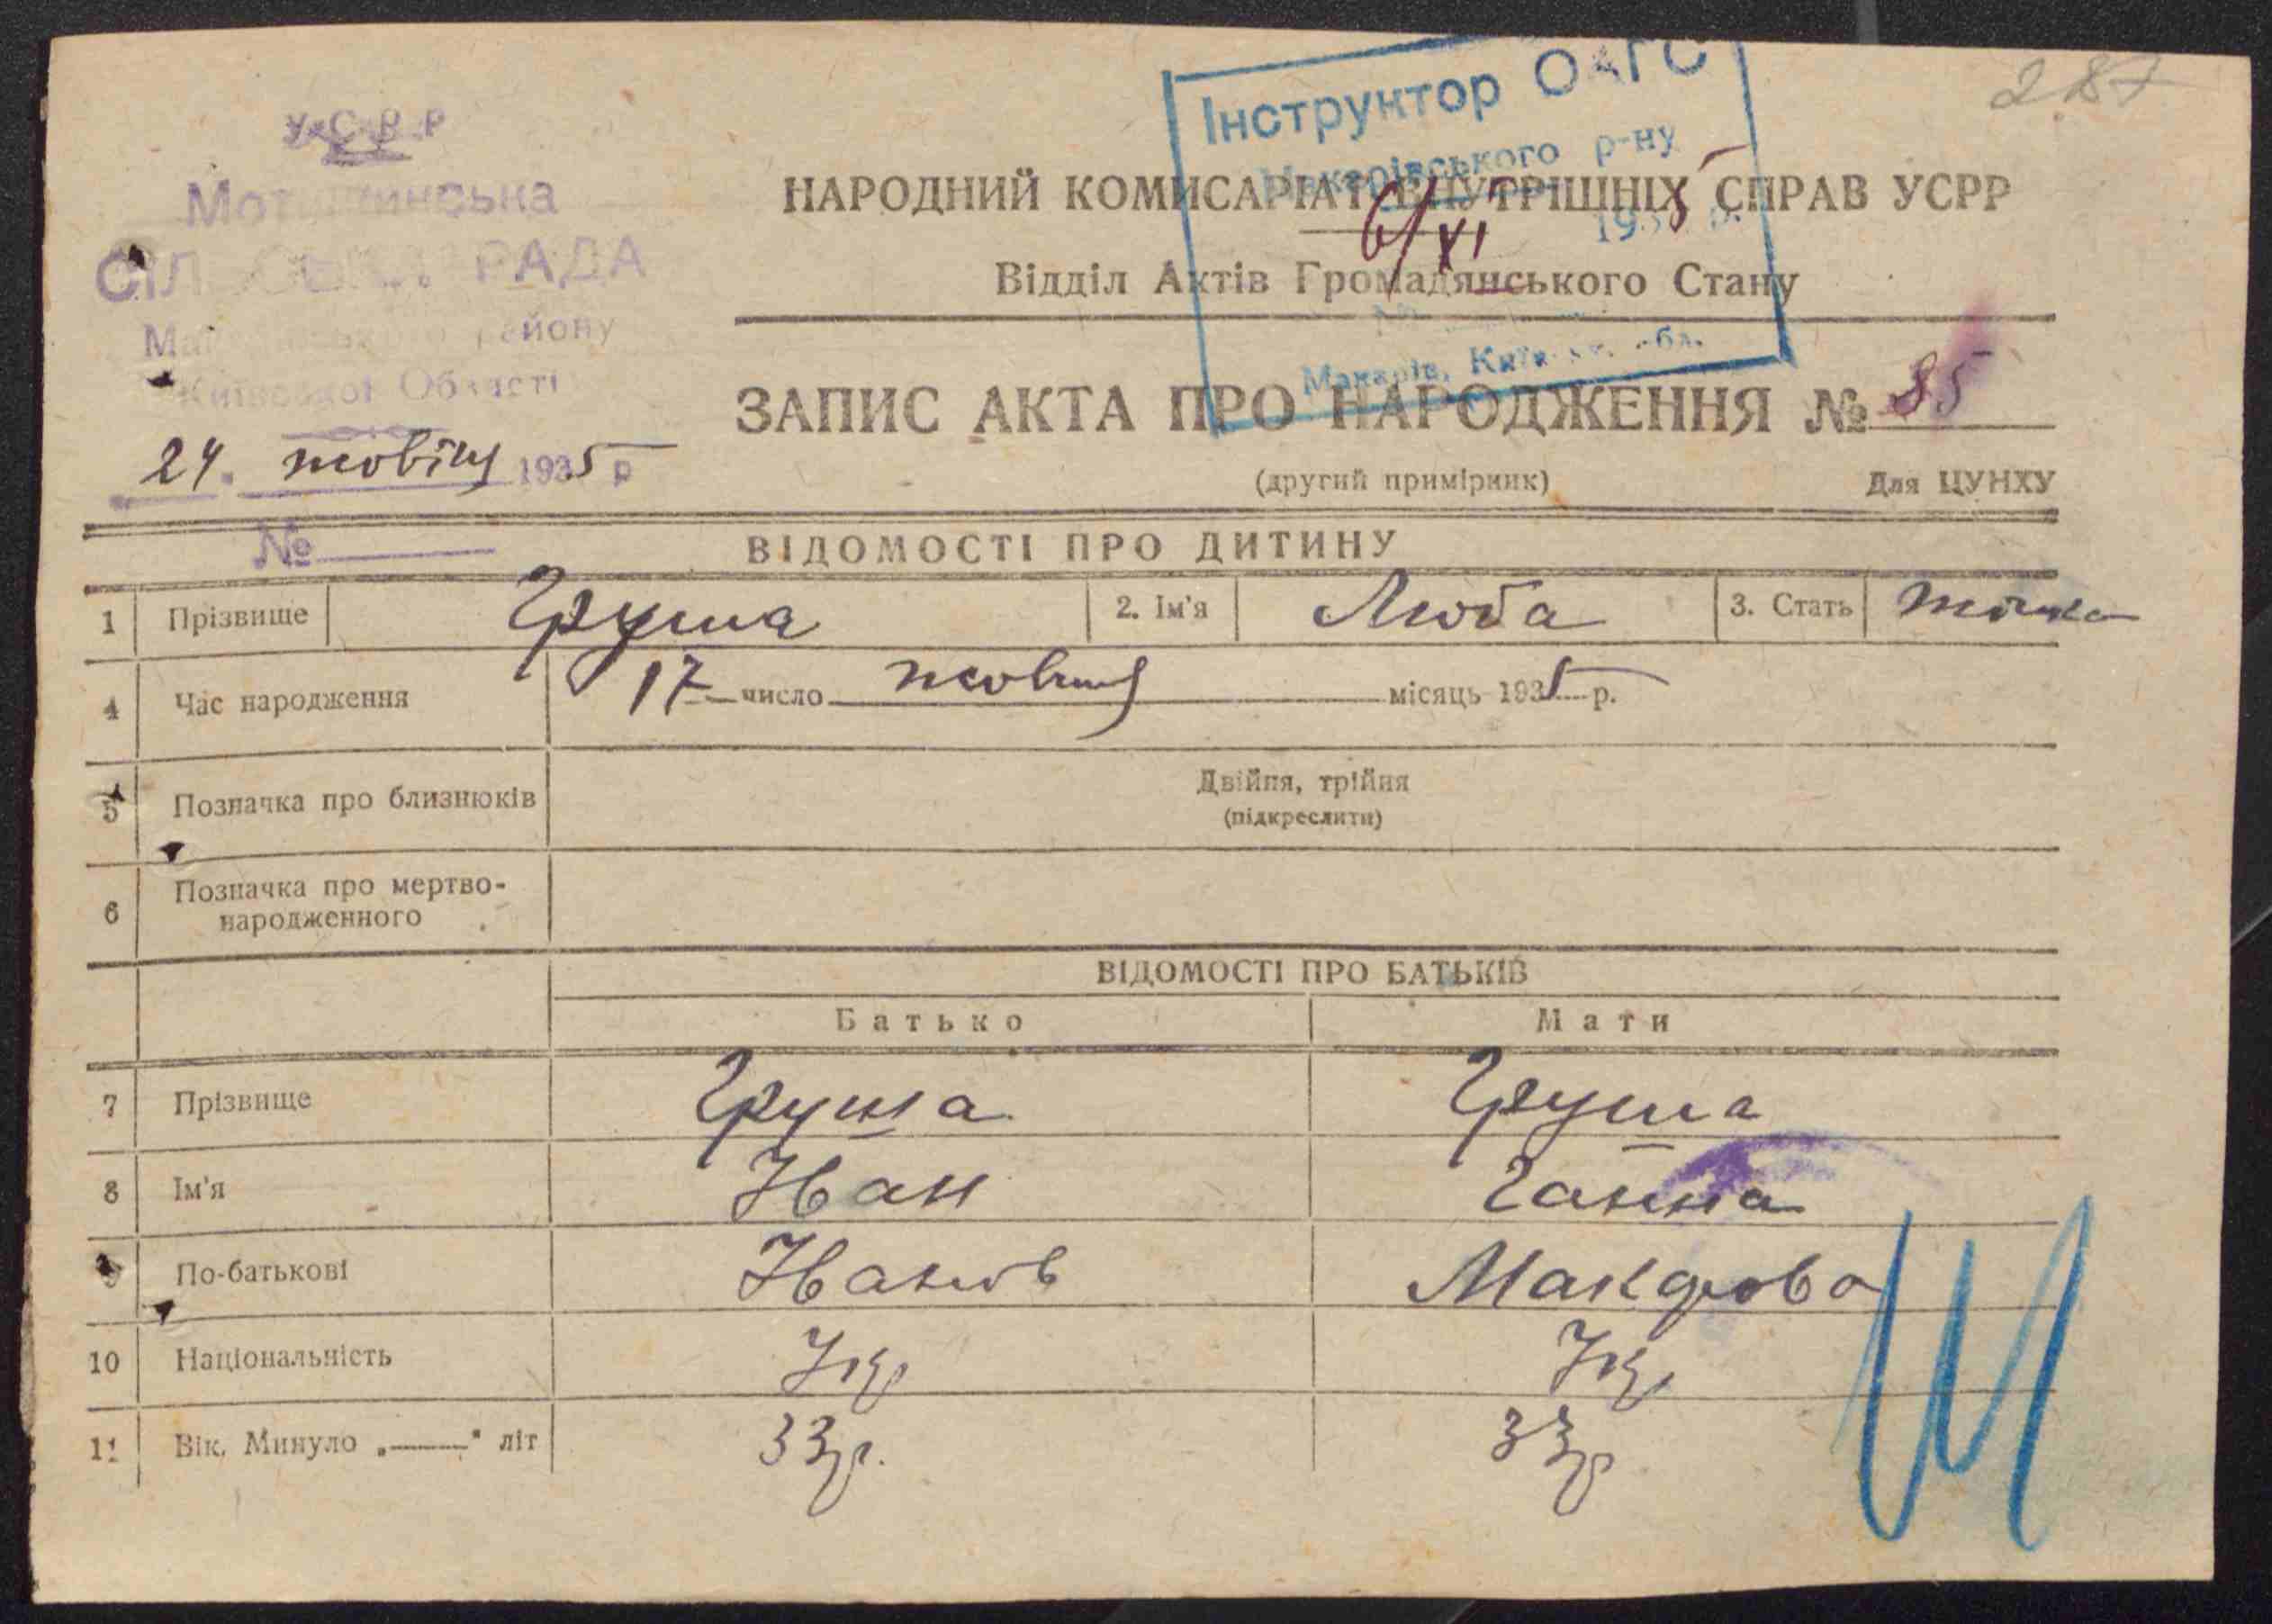 287
У.С.Р.Р
Мотижинська
СІЛЬСЬКА РАДА
Макарівського району
Київської Області
24. жовтня 1935 р
№
Інструктор ОАГС
Макарівського р-ну
6/XI 1935 р.
№
Макарів, Київськ. обл.
НАРОДНИЙ КОМИСАРІАТ ВНУТРІШНІХ СПРАВ УСРР
Відділ Актів Громадянського Стану
ЗАПИС АКТА ПРО НАРОДЖЕННЯ № 85
(другий примірник) Для ЦУНХУ
ВІДОМОСТІ ПРО ДИТИНУ
1 Прізвище Груша 2. Ім'я Люба 3. Стать жіноча
4 Час народження 17 число жовтня місяць 1935 р.
5 Позначка про близнюків Двійня, трійня
(підкреслити)
6 Позначка про мертво-
народженного
ВІДОМОСТІ ПРО БАТЬКІВ
Батько Мати
7 Прізвище Груша Груша
8 Ім'я Иван Ганна
9 По-батькові Иванов
10 Національність Укр Укр
11 Вік. Минуло „——" літ 33 р. 33 р